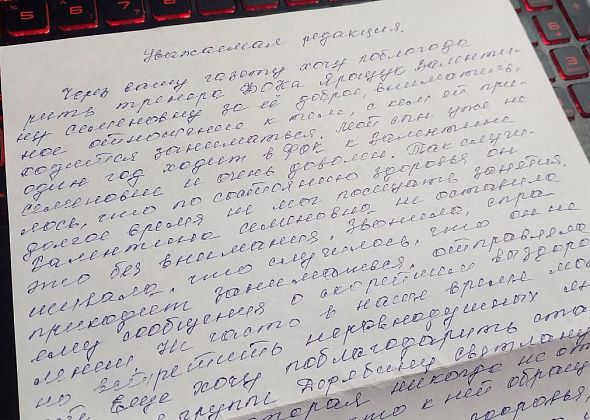 Уважаемая редакция.
Через вашу газету хочу поблагода
рить тренера ФОКа Ярощук Валенти-
ну Семеновну за её доброе, вниматель-
ное отношение к тем, с кем ей при-
ходится заниматься. Мой сын уже не
один год ходит в ФОК к Валентине
Семеновне и очень доволен. Так случи-
лось, что по состоянию здоровья он
долгое время не мог посещать занятия.
Валентина Семеновна не оставила
это без внимания, звонила, спра
шивала, что случилось, что он не
приходит заниматься, отправляла
ему сообщения о скорейшем выздоро
лении. Не часто в наше время мож
но встретить неравнодушных лю
Еще хочу поблагодарить ста
группы Дорябину Светлану
которая никогда не от
то к ней обращ
здоровья